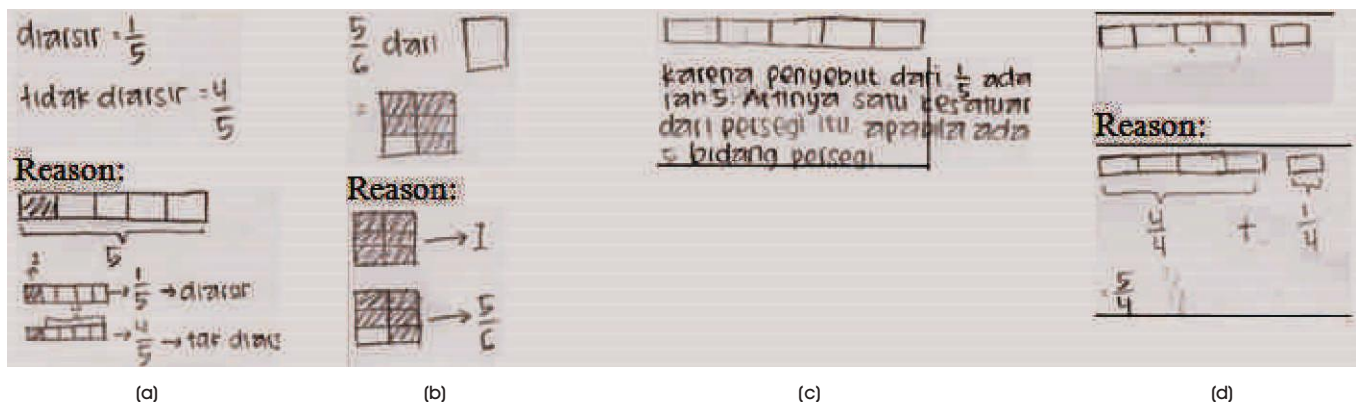 diarsir = 1/5
tidak diarsir = 4/5
Reason:
5
→ 1/5 → diarsir
→ 4/5 → tak
(a)
5/6 dari
=
Reason:
→ 1
→ 5/6
(b)
karena penyebut dari 1/5 ada
lah 5. Artinya satu kesatuan
dari persegi itu apabila ada
5 bidang persegi
(c)
Reason:
4/4 + 1/4
= 5/4
(d)